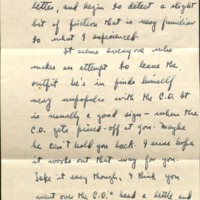 letter, and begin to detect a slight
bit of friction that is very familiar
to what I experienced.
It seems everyone who
makes an attempt to leave the
outfit he's in finds himself
very unpopular with the C.O. It
is usually a good sign - when the
C.O. gets pissed-off at you. Maybe
he can't hold you back. I sure hope
it works out that way for you.
Take it easy though, I think you
went over the C.O.'s head a little and